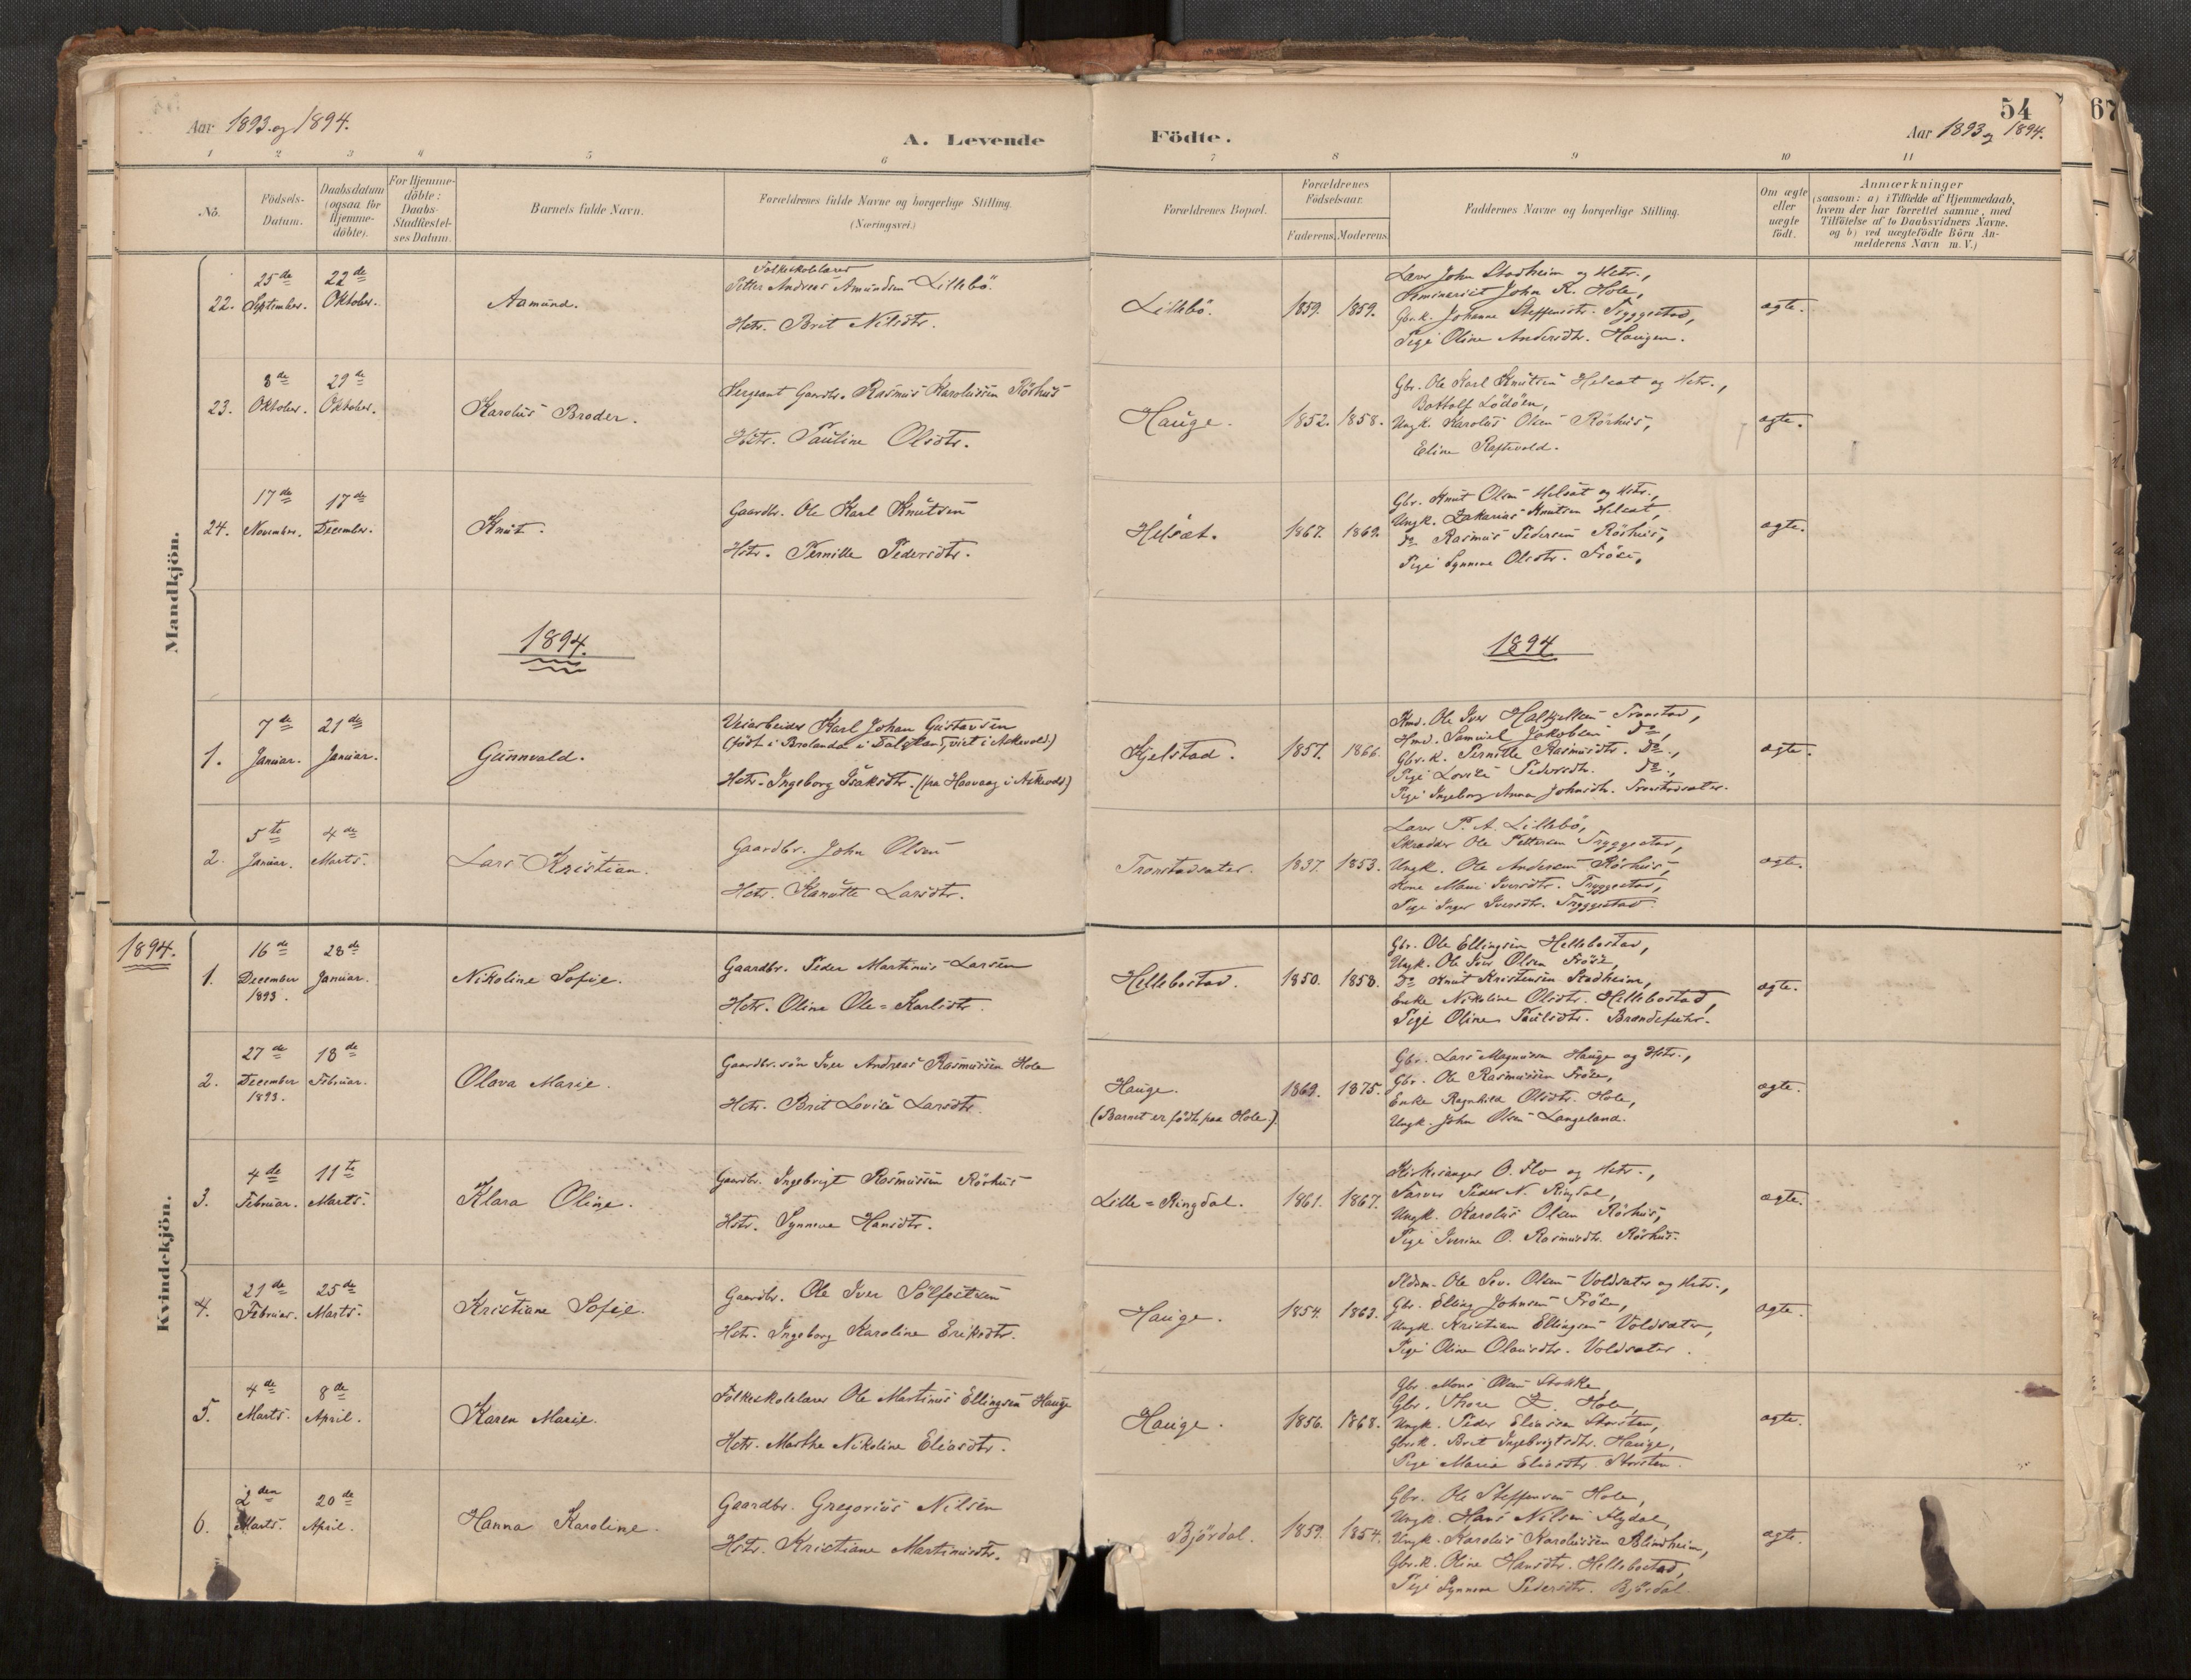 54
67
Aar 1893 og 1894.
A. Levende Födte.
Aar 1893 og 1894.
1 2 3 4 5 6 7 8 9 10 11
No.
Födsels-Datum.
Daabsdatum (ogsaa for Hjemme-döbte).
For Hjemme-döbte: Daabs-Stadfæstel-ses Datum.
Barnets fulde Navn.
Forældrenes fulde Navne og borgerlige Stilling.
(Næringsvei.)
Forældrenes Bopæl.
Forældrenes Födselsaar.
Faderens. Moderens.
Faddernes Navne og borgerlige Stilling.
Om ægte eller uægte födt.
Anmærkninger
(saasom: a) i Tilfælde af Hjemmedaab, hvem der har forrettet samme, med Tilföielse af to Daabsvidners Navne. og b) ved uægtefödte Börn An-melderens Navn m. V.)
Mandkjön.
22. 25de September. 22de Oktober.
Aamund.
Folkeskolelærer
Petter Andreas Amundsen Lillebö.
Hstr. Brit Nilsdtr.
Lillebö. 1859. 1859.
Lærer John Stadheim og Hstr.,
Seminarist John K. Hole,
Gbr.k. Johanne Steffensdtr. Tryggestad,
Pige Oline Andersdtr. Haugen.
ægte.
23. 8de Oktober. 29de Oktober.
Karolus Broder.
Sergeant Gaardbr. Rasmus Karolussen Rörhus
Hstr. Pauline Olsdtr.
Hauge. 1852. 1858.
Gbr. Ole Karl Knutsen Helsæt og Hstr.,
Bottolf Lödöen,
Ungk. Karolus Olsen Rörhus,
Eline Raftevold.
ægte.
24. 17de November. 17de December.
Knut.
Gaardbr. Ole Karl Knutsen
Hstr. Pernille Pedersdtr.
Helsæt. 1867. 1869.
Gbr. Knut Olsen Helsæt og Hstr.,
Ungk. Zakarias Knutsen Helsæt,
Do Rasmus Pedersen Rörhus,
Pige Synneve Olsdtr. Fröse,
ægte.
1894.
1894
1. 7de Januar. 21de Januar.
Gunnvald.
Veiarbeider Karl Johan Gustavsen
(födt i Brolanda i Dalsland, viet i Askevold)
Hstr. Ingeborg Isaksdtr. (fra Haavaag i Askevold)
Kjelstad. 1857. 1866.
Hmd. Ole Iver Halkjelsen Tronstad,
Hmd. Samuel Jakobsen Do,
Gbr.k. Pernille Rasmusdtr. Do,
Pige Lovise Pedersdtr. Do,
Pige Ingeborg Anna Johnsdtr. Tronstadsæter.
ægte.
2. 5te Januar. 4de Marts.
Lars Kristian.
Gaardbr. John Olsen
Hstr. Kanutte Larsdtr.
Tronstadsæter. 1837. 1853.
Lærer P. A. Lillebö,
Skrædder Ole Pettersen Tryggestad,
Ungk. Ole Andersen Rörhus,
Kone Mari Iversdtr. Tryggestad,
Pige Inger Iversdtr. Tryggestad.
ægte.
Kvindekjön.
1894.
1. 16de December 1893. 28de Januar.
Nikoline Sofie.
Gaardbr. Peder Martinus Larsen
Hstr. Oline Ole-Karlsdtr.
Hellebostad. 1850. 1858.
Gbr. Ole Ellingsen Hellebostad,
Ungk. Ole Iver Olsen Fröse,
Do Knut Kristensen Stadheim,
Enke Nikoline Olsdtr. Hellebostad,
Pige Oline Paulsdtr. Brandesæter.
ægte.
2. 27de December 1893. 18de Februar.
Olava Marie.
Gaardbr.sön Iver Andreas Rasmussen Hole
Hstr. Brit Lovise Larsdtr.
Hauge.
(Barnet er födt paa Hole.)
1869. 1875.
Gbr. Lars Magnussen Hauge og Hstr.,
Gbr. Ole Rasmussen Fröse,
Enke Ragnhild Olsdtr. Hole,
Ungk. John Olsen Langeland.
ægte.
3. 4de Februar. 11te Marts.
Klara Oline.
Gaardbr. Ingebrigt Rasmussen Rörhus
Hstr. Synneve Hansdtr.
Lille-Ringdal. 1861. 1867.
Kirkesanger O. Flo og Hstr.,
Farver Peder N. Ringdal,
Ungk. Karolus Olsen Rörhus,
Pige Iverine O. Rasmusdtr. Rörhus.
ægte.
4. 21de Februar. 25de Marts.
Kristiane Sofie.
Gaardbr. Ole Iver Sölfestsen
Hstr. Ingeborg Karoline Eriksdtr.
Hauge. 1854. 1863.
Ole Sev. Olsen Voldsæter og Hstr.,
Gbr. Elling Johnsen Fröse,
Ungk. Kristian Ellingsen Voldsæter,
Pige Oline Olausdtr. Voldsæter.
ægte.
5. 4de Marts. 8de April.
Karen Marie.
Folkeskolelærer Ole Martinus Ellingsen Hauge
Hstr. Marthe Nikoline Eliasdtr.
Hauge. 1856. 1868.
Gbr. Mons Olsen Stokke,
Gbr. Thore Z. Hole,
Ungk. Peder Eliassen Storsten,
Gbrk. Brit Ingebrigtsdtr. Hauge,
Pige Marie Eliasdtr. Storsten.
ægte.
6. 2den Marts. 20de April.
Hanna Karoline.
Gaardbr. Gregorius Nilsen
Hstr. Kristiane Martinusdtr.
Björdal. 1859. 1854.
Gbr. Ole Steffensen Hole,
Ungk. Hans Nilsen Flydal,
Ungk. Karolus Karolussen Blindheim,
Gbr.k. Oline Hansdtr. Hellebostad,
Pige Synneve Pedersdtr. Björdal
ægte.